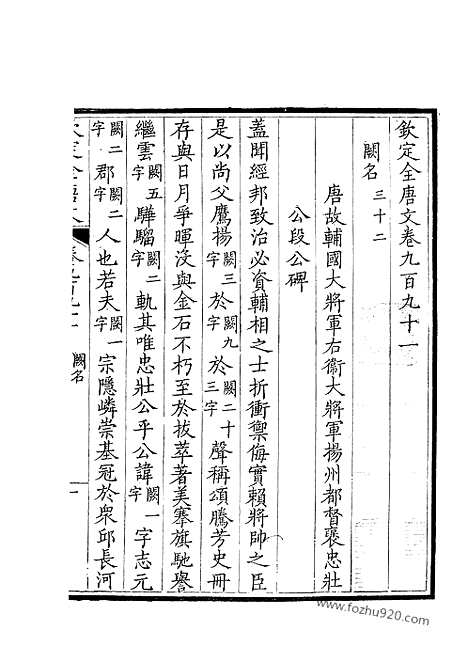 欽定全唐文卷九百九十一
闕名三十二
唐故輔國大將軍右衞大將軍揚州都督襃忠壯
公段公碑
蓋聞經邦致治必資輔相之士折衝禦侮實賴將帥之臣
是以尚父鷹揚闕三字於闕九字於闕二十三字聲稱頌騰芳史冊
存與日月爭暉沒與金石不朽至於拔萃著美搴旗馳譽
繼雲闕五字驊騮闕二字軌其唯忠壯公乎公諱闕一字字志元
闕二字郡闕二字人也若夫闕一字宗隱嶙崇基冠於衆邱長河
闕名
一
www.fozhu920.com